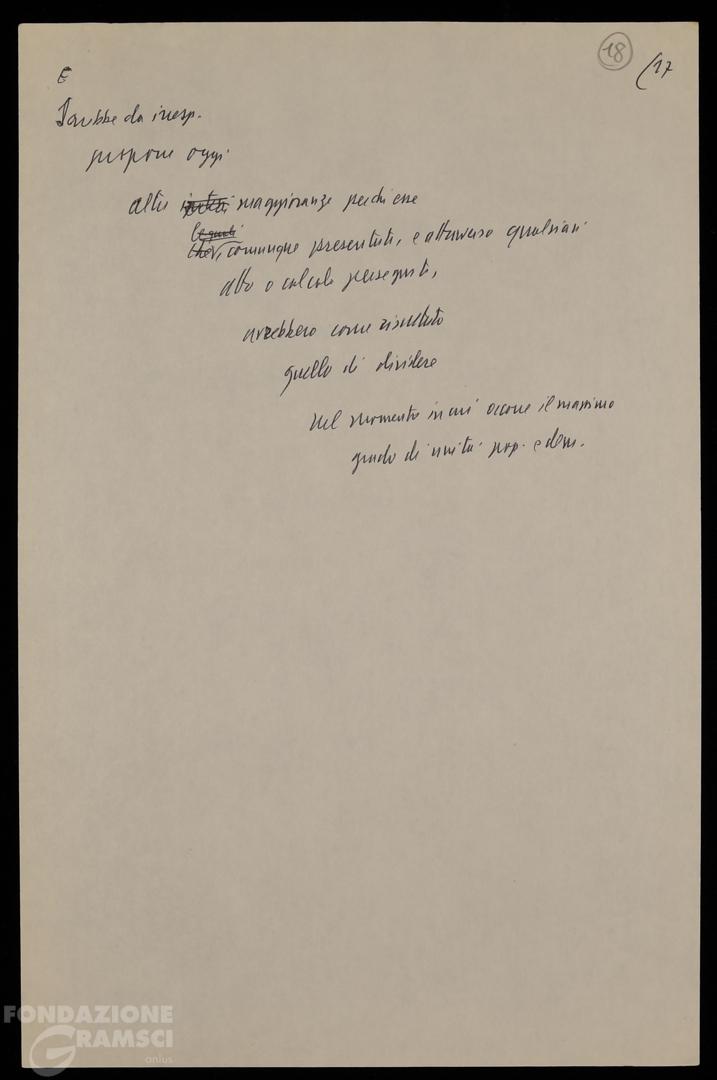 18
(17
E
Sarebbe da irresp.
proporre oggi
altre maggioranze perché esse
le quali
che, comunque presentate, e attraverso qualsiasi
atto o calcolo perseguite,
avrebbero come risultato
quello di dividere
nel momento in cui occorre il massimo
grado di unità pop. e dem.
FONDAZIONE
GRAMSCI
onlus